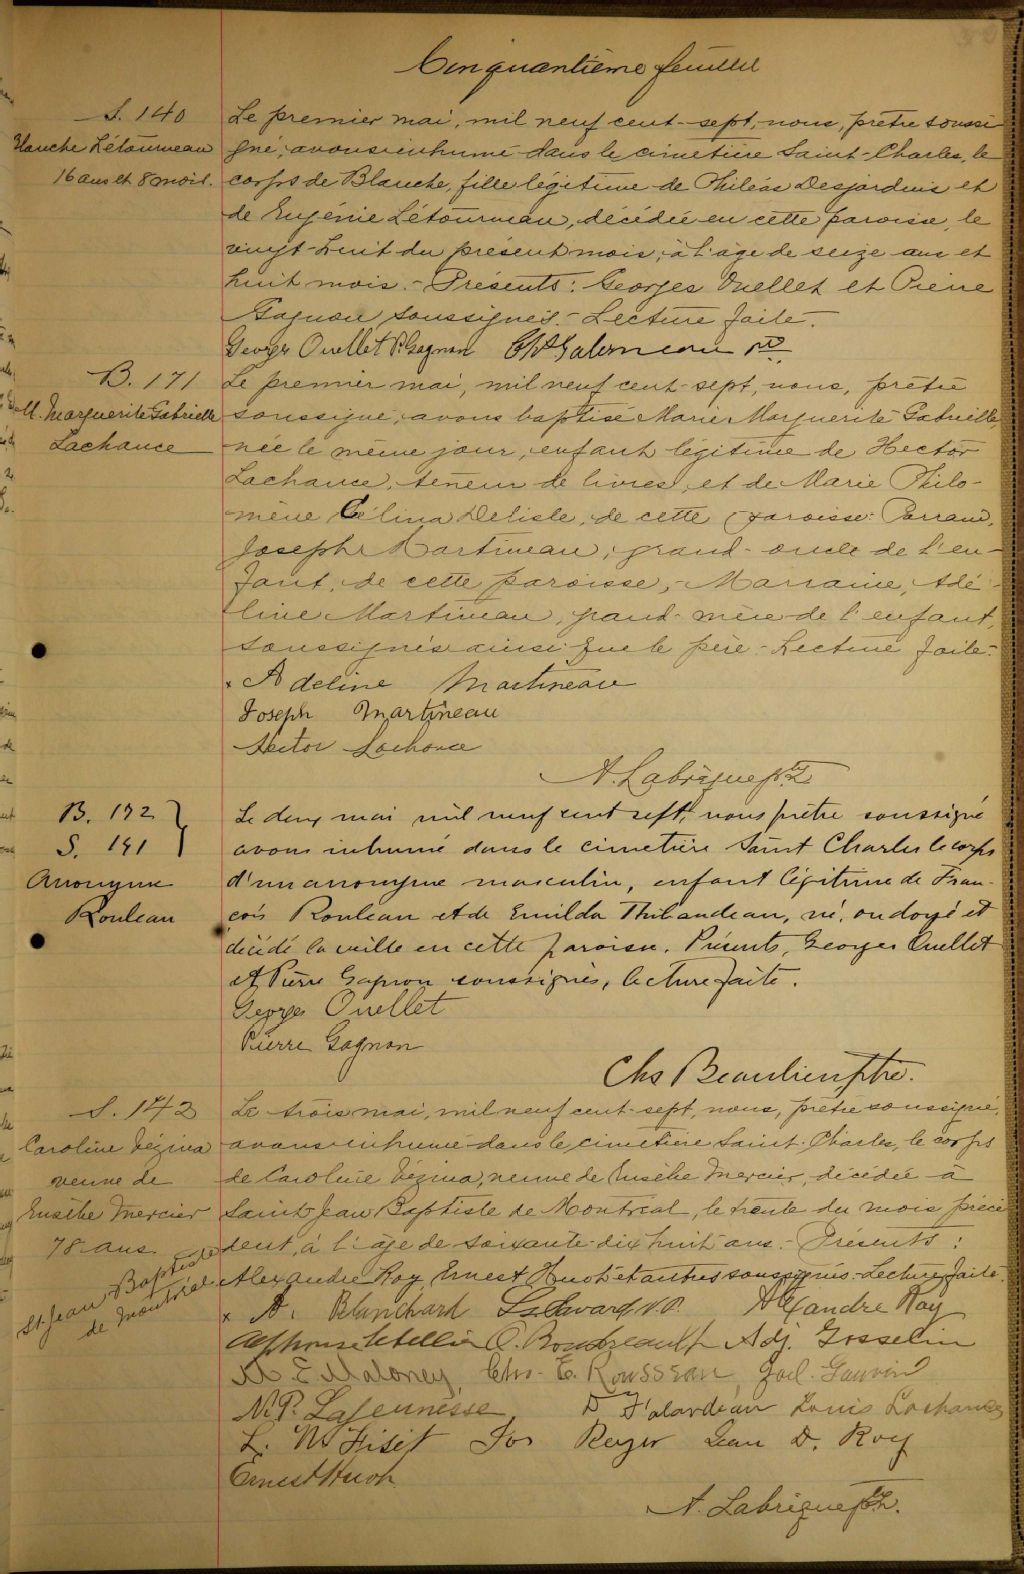 Cinquantième feuillet
S. 140
Blanche Létourneau
16 ans et 8 mois.
Le premier mai, mil neuf cent-sept, nous, prêtre soussi-
gné, avons inhumé dans le cimetière Saint-Charles, le
corps de Blanche, fille légitime de Philéas Desjardins et
de Eugénie Létourneau, décédée en cette paroisse, le
vingt-huit du présent mois, à l'âge de seize ans et
huit mois. - Présents: Georges Ouellet et Pierre
Gagnon soussignés. - Lecture faite.
Georges Ouellet P. Gagnon
B. 171
M. Marguerite Gabrielle
Lachance
Le premier mai, mil neuf cent-sept, nous, prêtre
soussigné, avons baptisé Marie Marguerite Gabrielle
née le même jour, enfant légitime de Hector
Lachance, teneur de livres, et de Marie Philo-
mène Célina Delisle, de cette paroisse. Parrain,
Joseph Martineau, grand-oncle de l'en-
fant, de cette paroisse, - Marraine, Adé-
line Martineau, grand-mère de l'enfant,
soussignés ainsi que le père. - Lecture faite. -
x Adeline Martineau
Joseph Martineau
Hector Lachance
A. Labrèque ptre
B. 172
S. 141
Anonyme
Rouleau
Le deux mai mil neuf cent sept, nous prêtre soussigné
avons inhumé dans le cimetière Saint Charles le corps
d'un anonyme masculin, enfant légitime de Fran-
çois Rouleau et de Emilda Thibaudeau, né, ondoyé et
décédé la veille en cette paroisse. Présents, Georges Ouellet
et Pierre Gagnon soussignés, lecture faite.
Georges Ouellet
Pierre Gagnon
Chs Beaulieu ptre.
S. 142
Caroline Vézina
veuve de
Eusèbe Mercier
78 ans
St. Jean Baptiste
de Montréal
Le trois mai, mil neuf cent-sept, nous, prêtre soussigné,
avons inhumé dans le cimetière Saint-Charles, le corps
de Caroline Vézina, veuve de Eusèbe Mercier, décédée à
Saint-Jean Baptiste de Montréal, le trente du mois précé-
dent, à l'âge de soixante-dix huit ans. - Présents:
Alexandre Roy, Ernest Huot et autres soussignés. - Lecture faite.
x A. Blanchard Alexandre Roy
Alphonse Letellier O. Boudreault Adj. Gosselin
E Maloney, Chs. E. Rousseau, Joel. Gauvin
N. P. Lajeunesse D Falardeau Louis Lachance
L. N Fiset Jos Royer Jean D. Roy
Ernest Huot
A. Labrèque ptre.